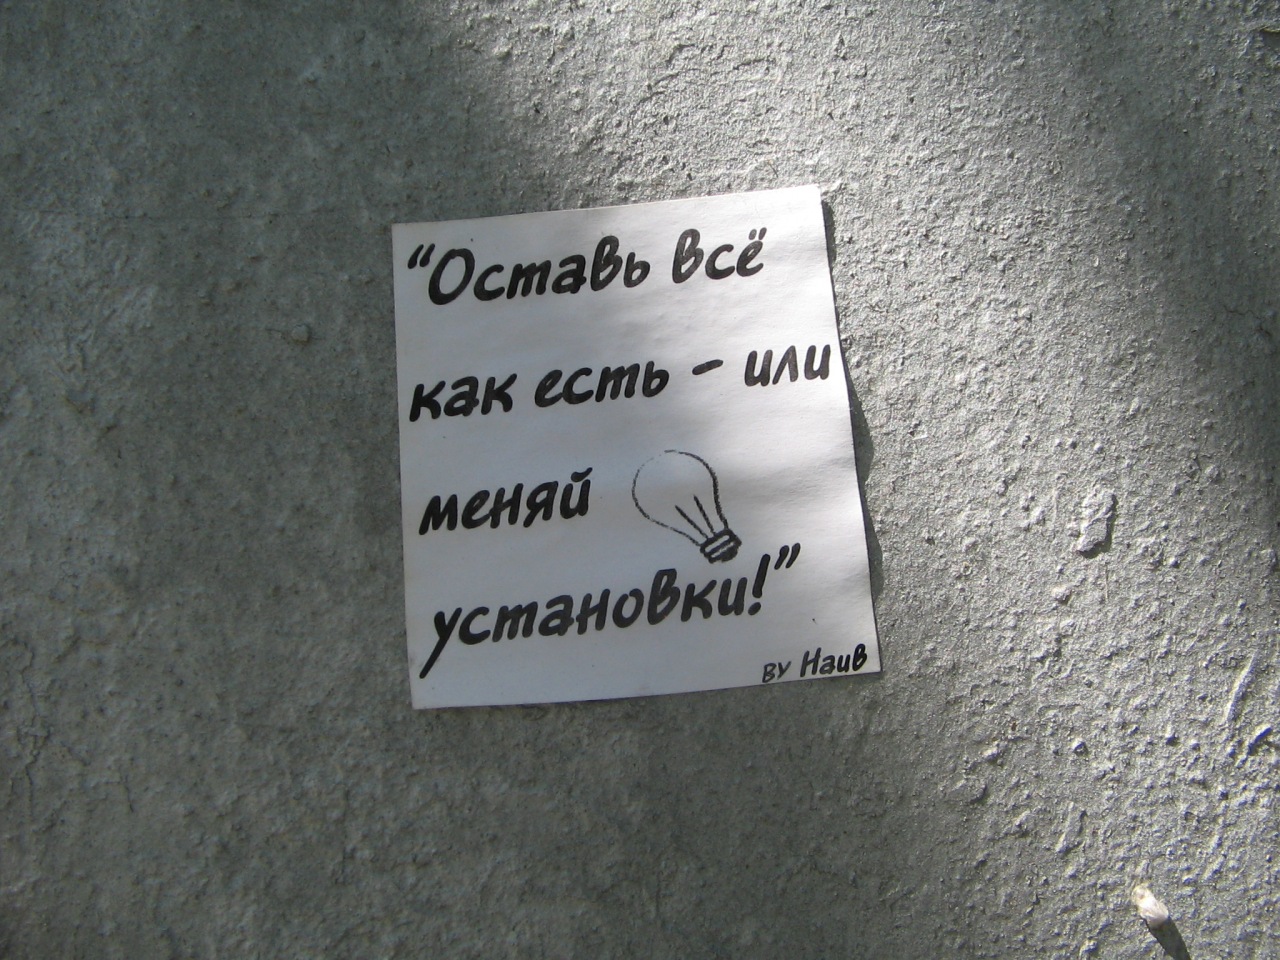 “Оставь всё
как есть - или
меняй
установки!”
ву Наив